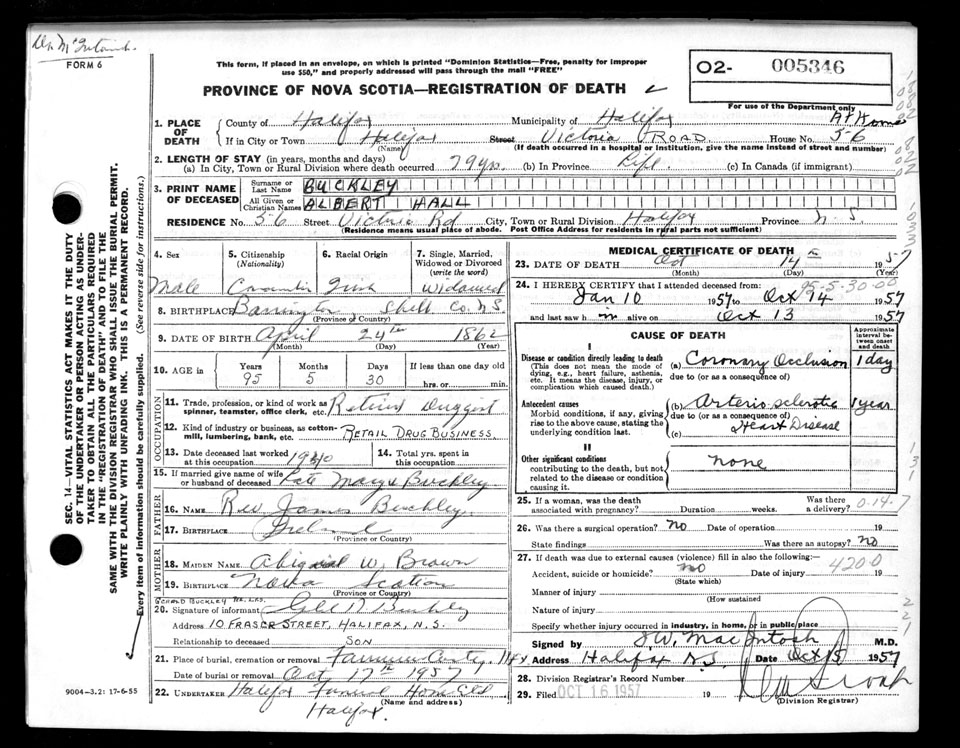 Dr. McIntosh
FORM 6
This form, if placed in an envelope, on which is printed "Dominion Statistics—Free, penalty for improper
use $50," and properly addressed will pass through the mail "FREE"
PROVINCE OF NOVA SCOTIA—REGISTRATION OF DEATH
O2- 005346
For use of the Department only
1. PLACE OF DEATH County of Halifax Municipality of Halifax At Home
If in City or Town Halifax (Name) Street Victoria ROAD House No. 56
(If death occurred in a hospital or institution, give the name instead of street and number)
2. LENGTH OF STAY (in years, months and days)
(a) In City, Town or Rural Division where death occurred 79 yrs. (b) In Province Life (c) In Canada (if immigrant)
3. PRINT NAME OF DECEASED Surname or Last Name BUCKLEY
All Given or Christian Names ALBERT HALL
RESIDENCE No. 56 Street Victoria Rd City, Town or Rural Division Halifax Province N.S.
(Residence means usual place of abode. Post Office Address for residents in rural parts not sufficient)
4. Sex Male
5. Citizenship (Nationality) Canadian
6. Racial Origin Irish
7. Single, Married, Widowed or Divorced (write the word) Widowed
8. BIRTHPLACE Barrington, Shelb. Co. NS
(Province or Country)
9. DATE OF BIRTH April 24th 1862
(Month) (Day) (Year)
10. AGE in Years 95 Months 5 Days 30 If less than one day old hrs. or min.
OCCUPATION
11. Trade, profession, or kind of work as spinner, teamster, office clerk, etc. Retired Druggist
12. Kind of industry or business, as cotton-mill, lumbering, bank, etc. RETAIL DRUG BUSINESS
13. Date deceased last worked at this occupation 1940 14. Total yrs. spent in this occupation
15. If married give name of wife or husband of deceased Late Mary Buckley
FATHER
16. Name Rev James Buckley
17. BIRTHPLACE Ireland
(Province or Country)
MOTHER
18. MAIDEN NAME Abigail W. Brown
19. BIRTHPLACE Nova Scotia
(Province or Country)
20. Signature of informant Buckley
Address 10 FRASER STREET, HALIFAX, N.S.
Relationship to deceased SON
21. Place of burial, cremation or removal Hfx
Date of burial or removal Oct 17th 1957
22. UNDERTAKER Halifax Funeral Home Ltd
(Name and address)
Halifax.
MEDICAL CERTIFICATE OF DEATH
23. DATE OF DEATH Oct 14 1957
(Month) (Day) (Year)
95-5-30-00
24. I HEREBY CERTIFY that I attended deceased from:
Jan 10 1957 to Oct 14 1957
and last saw him alive on Oct 13 1957
CAUSE OF DEATH
Approximate interval between onset and death
I
Disease or condition directly leading to death (a) Coronary Occlusion 1 day
(This does not mean the mode of dying, e.g., heart failure, asthenia, etc. It means the disease, injury, or complication which caused death.)
due to (or as a consequence of)
Antecedent causes (b) Arteriosclerotic 1 year
Morbid conditions, if any, giving rise to the above cause, stating the underlying condition last.
due to (or as a consequence of)
(c) Heart Disease
II
Other significant conditions
contributing to the death, but not related to the disease or condition causing it.
none
25. If a woman, was the death associated with pregnancy? Duration weeks. Was there a delivery?
26. Was there a surgical operation? No Date of operation 19
State findings Was there an autopsy? No
27. If death was due to external causes (violence) fill in also the following: 4200
Accident, suicide or homicide? No Date of injury 19
(State which)
Manner of injury
(How sustained)
Nature of injury
Specify whether injury occurred in industry, in home, or in public place
Signed by MacIntosh M.D.
Address Halifax N.S. Date Oct 15 1957
28. Division Registrar's Record Number
29. Filed OCT 16 1957 19
(Division Registrar)
SEC. 14—VITAL STATISTICS ACT MAKES IT THE DUTY
OF THE UNDERTAKER OR PERSON ACTING AS UNDERTAKER
TO OBTAIN ALL THE PARTICULARS REQUIRED
IN THE "REGISTRATION OF DEATH" AND TO FILE THE
SAME WITH THE DIVISION REGISTRAR WHO SHALL ISSUE THE BURIAL PERMIT.
WRITE PLAINLY WITH UNFADING INK. THIS IS A PERMANENT RECORD.
Every item of information should be carefully supplied. (See reverse side for instructions.)
9004—3.2: 17-6-55